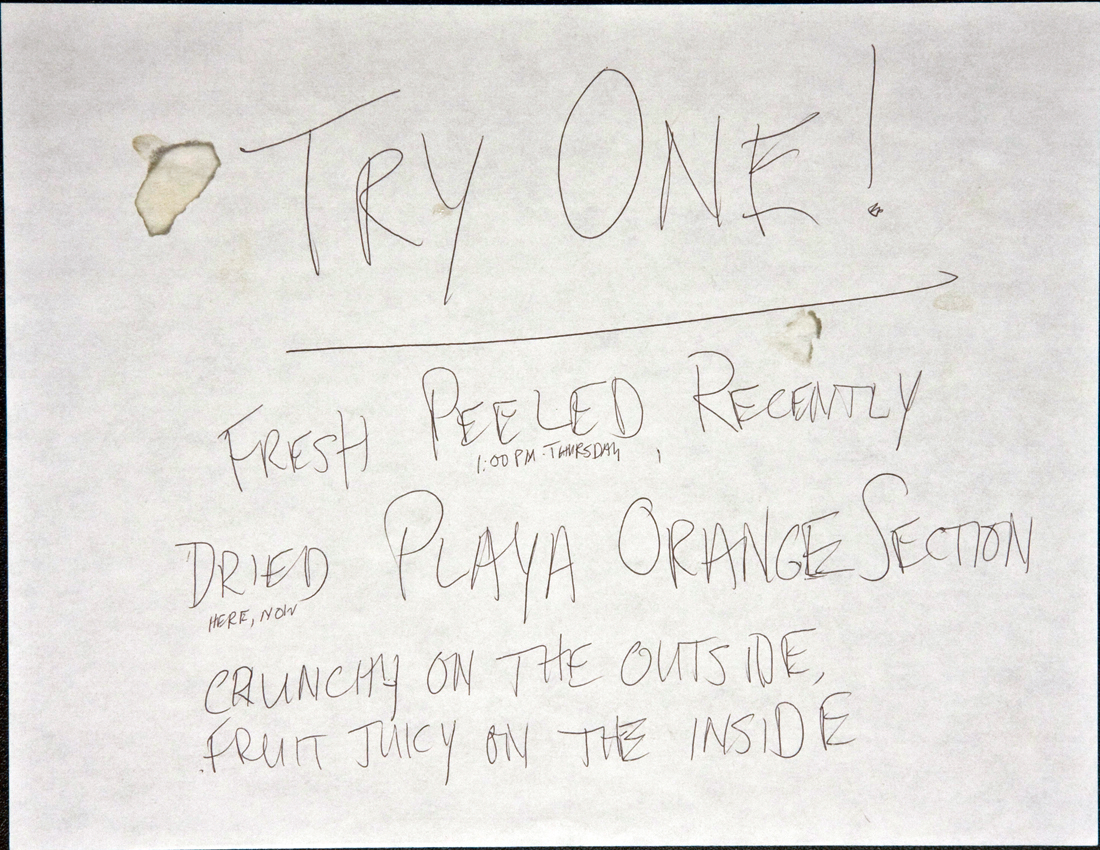 TRY ONE!
FRESH PEELED, RECENTLY
1:00 PM - THURSDAY
DRIED PLAYA ORANGE SECTION
HERE, NOW
CRUNCHY ON THE OUTSIDE,
FRUIT JUICY ON THE INSIDE